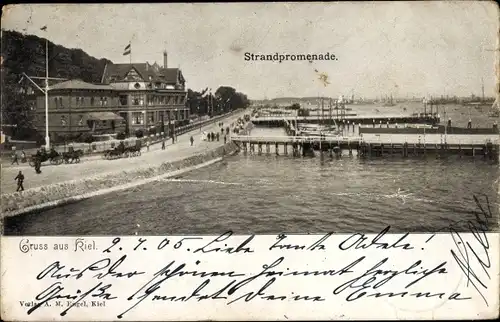 Strandpromenade.
Gruss aus Kiel. 2. 7. 05. Liebe Tante Adele!
Aus der schönen Heimat herzliche
Grüße sendet deine Emma
Verlag A. M. Engel, Kiel